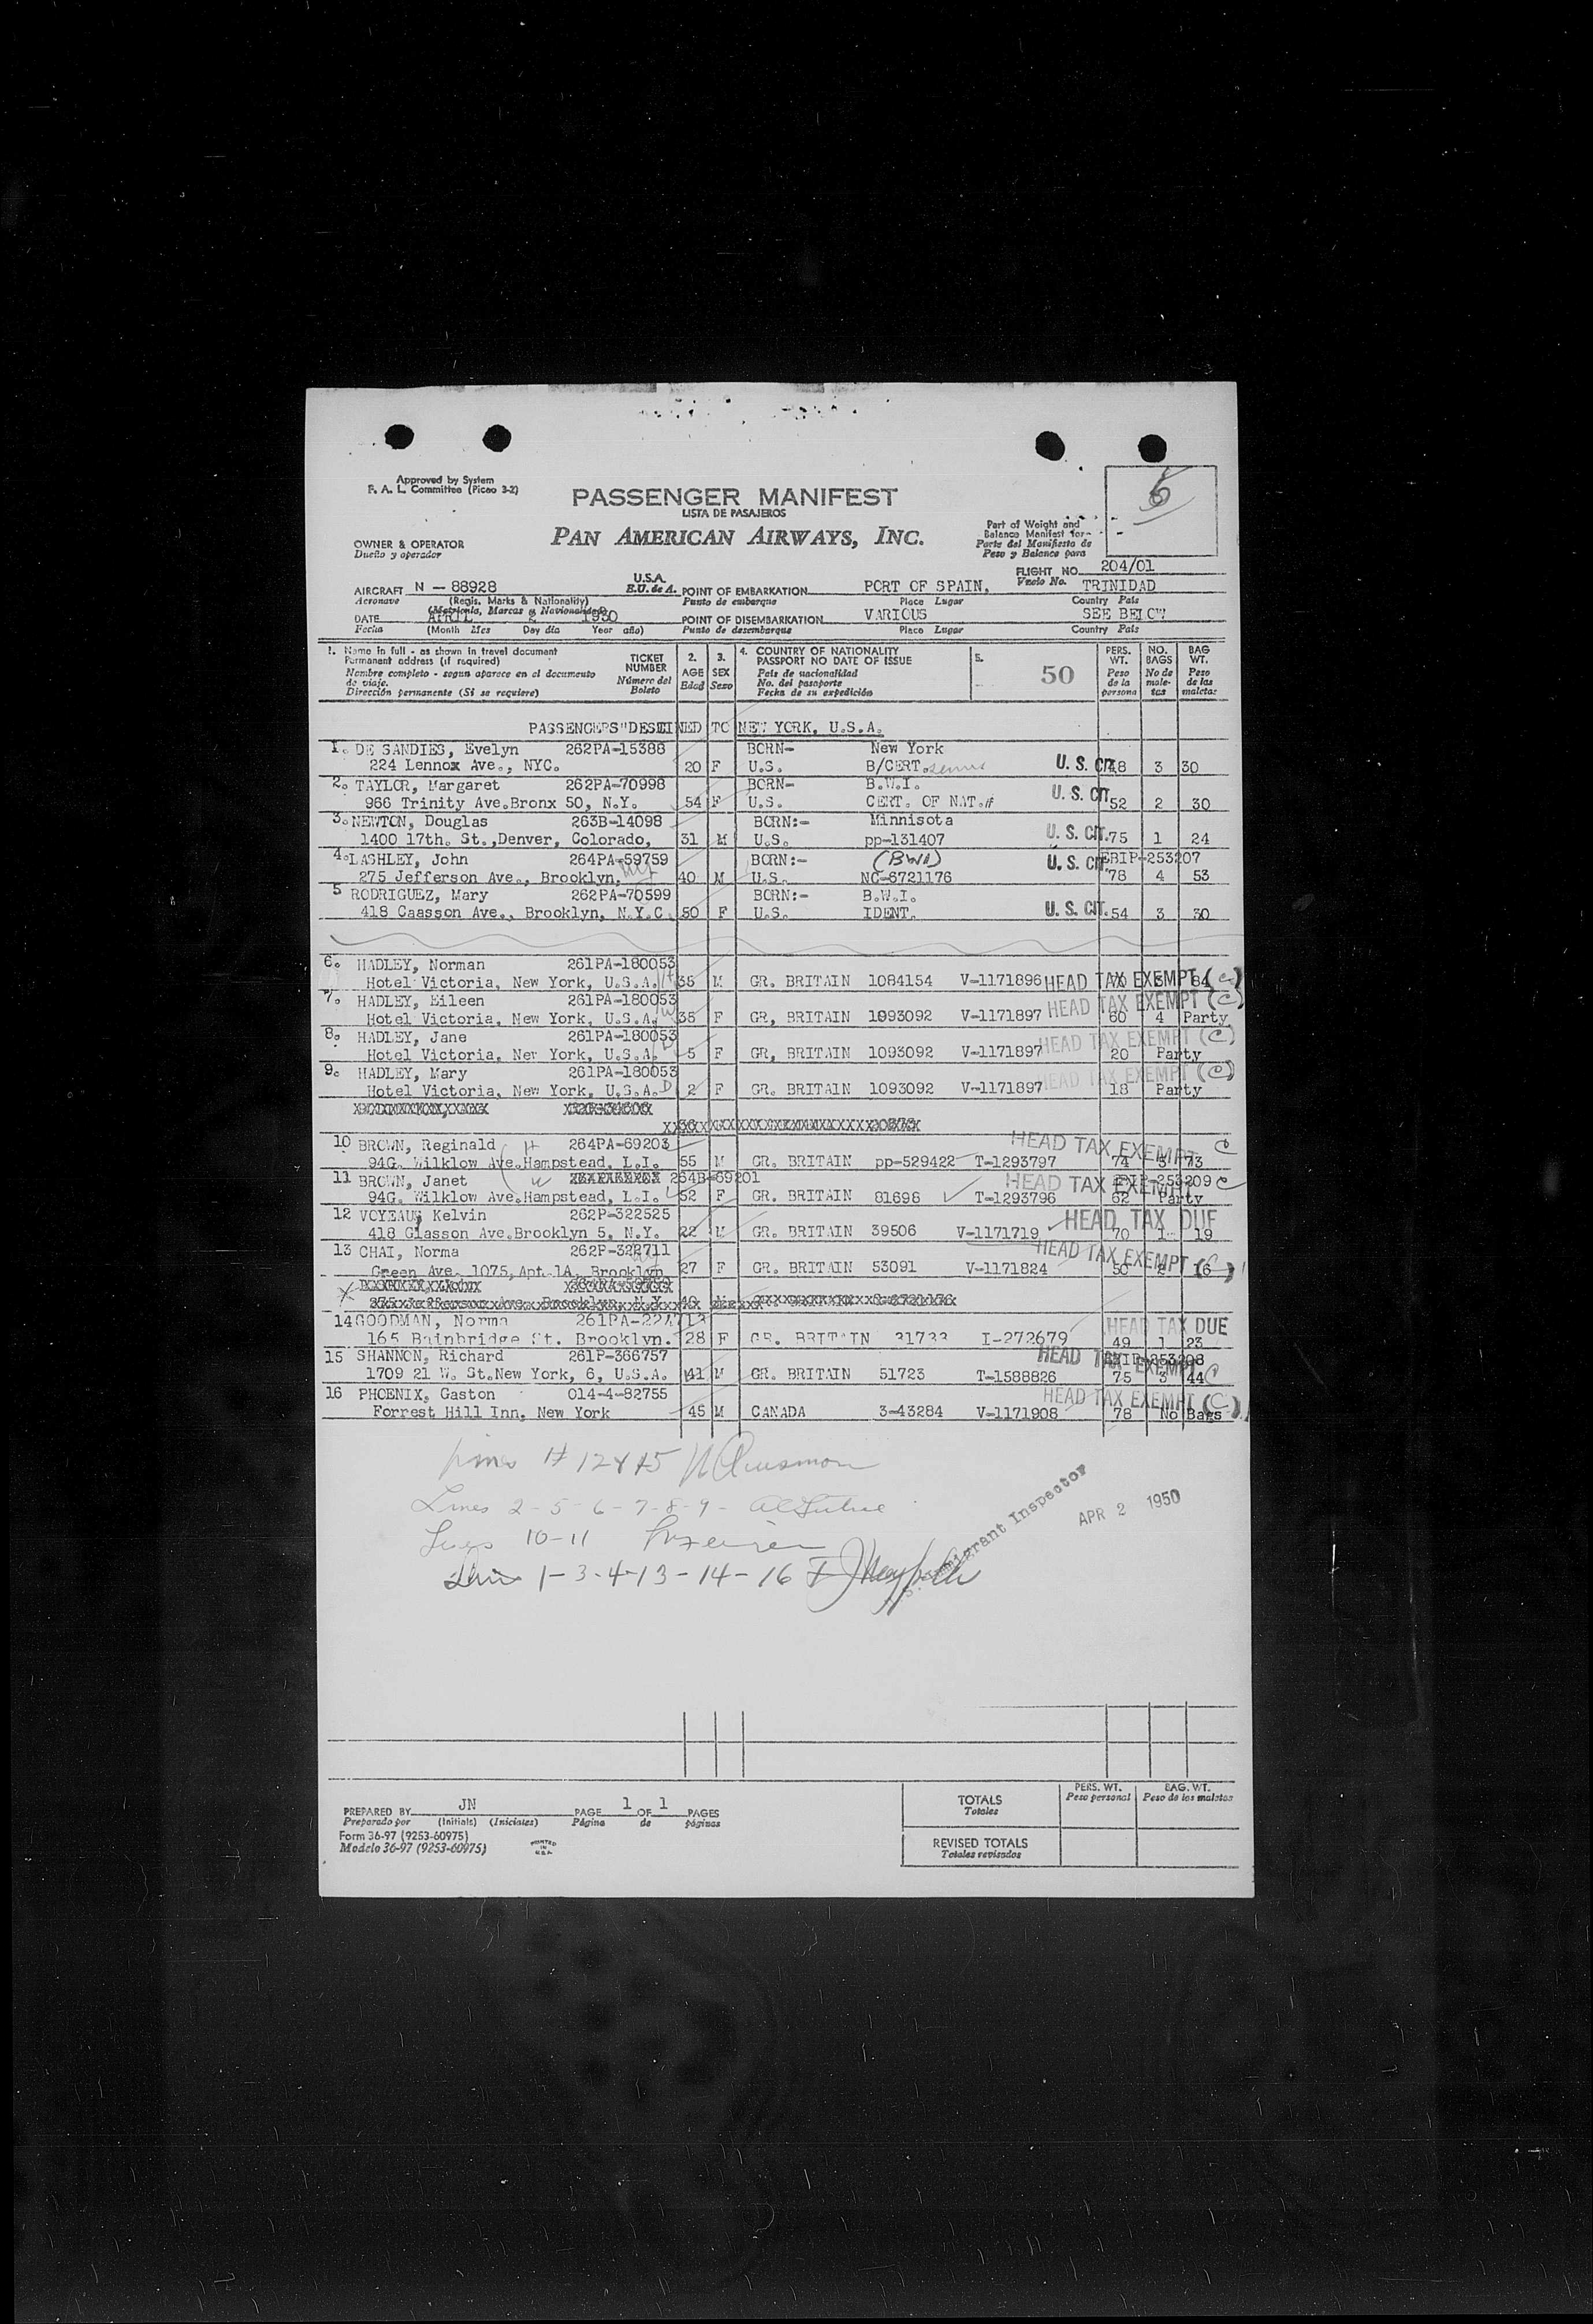 Approved by System
F. A. L. Committee (Picao 3-2)
PASSENGER MANIFEST
LISTA DE PASAJEROS
PAN AMERICAN AIRWAYS, INC.
6
OWNER & OPERATOR
Dueño y operador
Part of Weight and
Balance Manifest for-
Parte del Manifiesto de
Peso y Balance para
FLIGHT NO. 204/01
Vuelo No.
AIRCRAFT N - 88928 U.S.A.
Aeronave (Regis. Marks & Nationality) E.U. de A.
POINT OF EMBARKATION PORT OF SPAIN, TRINIDAD
Punto de embarque Place Lugar Country País
DATE APRIL 2 1950
Fecha (Month Mes Day día Year año)
POINT OF DISEMBARKATION VARIOUS SEE BELOW
Punto de desembarque Place Lugar Country País
1. Name in full - as shown in travel document
Permanent address (if required)
Nombre completo - segun aparece en el documento
de viaje.
Dirección permanente (Si se requiere)
TICKET
NUMBER
Número del
Boleto
2.
AGE
Edad
3.
SEX
Sexo
4. COUNTRY OF NATIONALITY
PASSPORT NO DATE OF ISSUE
País de nacionalidad
No. del pasaporte
Fecha de su expedición
5.
50
PERS.
WT.
Peso
de la
persona
NO.
BAGS
No de
male-
tas
BAG
WT.
Peso
de las
maletas
PASSENGERS DESTINED TO NEW YORK, U.S.A.
1. DE SANDIES, Evelyn 262PA-15388 BORN- New York
224 Lennox Ave., NYC. 20 F U.S. B/CERT. U. S. CIT. 48 3 30
2. TAYLOR, Margaret 262PA-70998 BORN- B.W.I.
966 Trinity Ave.Bronx 50, N.Y. 54 F U.S. CERT. OF NAT. U. S. CIT. 52 2 30
3. NEWTON, Douglas 263B-14098 BORN:- Minnisota
1400 17th. St.,Denver, Colorado, 31 M U.S. pp-131407 U. S. CIT. 75 1 24
4. LASHLEY, John 264PA-59759 BORN:- (BWI) EBIP-253207
275 Jefferson Ave., Brooklyn, 40 M U.S. NC-6721176 U. S. CIT. 78 4 53
5 RODRIGUEZ, Mary 262PA-70599 BORN:- B.W.I.
418 Caasson Ave., Brooklyn, N.Y.C. 50 F U.S. IDENT. U. S. CIT. 54 3 30
6. HADLEY, Norman 261PA-180053
Hotel Victoria, New York, U.S.A. H 35 M GR. BRITAIN 1084154 V-1171896 HEAD TAX EXEMPT (C) 70 84
7. HADLEY, Eileen 261PA-180053
Hotel Victoria, New York, U.S.A. W 35 F GR, BRITAIN 1093092 V-1171897 HEAD TAX EXEMPT (C) 60 4 Party
8. HADLEY, Jane 261PA-180053
Hotel Victoria, New York, U.S.A. D 5 F GR, BRITAIN 1093092 V-1171897 HEAD TAX EXEMPT (C) 20 Party
9. HADLEY, Mary 261PA-180053
Hotel Victoria, New York, U.S.A. D 2 F GR. BRITAIN 1093092 V-1171897 HEAD TAX EXEMPT (C) 18 Party
10 BROWN, Reginald H 264PA-69203
94G. Wilklow Ave.Hampstead, L.I. 55 M GR. BRITAIN pp-529422 T-1293797 HEAD TAX EXEMPT C 74 3 73
11 BROWN, Janet W 264B-69201
94G. Wilklow Ave.Hampstead, L.I. 52 F GR. BRITAIN 81696 T-1293796 HEAD TAX EXEMPT C 62 Party
12 VOYEAUS Kelvin 262P-322525
418 Glasson Ave.Brooklyn 5, N.Y. 22 M GR. BRITAIN 39506 V-1171719 HEAD TAX DUE 70 1 19
13 CHAI, Norma 262P-322711
Green Ave. 1075,Apt.1A, Brooklyn 27 F GR. BRITAIN 53091 V-1171824 HEAD TAX EXEMPT (C) 50 2 16
14 GOODMAN, Norma 261PA-224713
165 Bainbridge St. Brooklyn. 28 F GR. BRITAIN 31733 I-272679 HEAD TAX DUE 49 1 23
15 SHANNON, Richard 261P-366757
1709 21 W. St.New York, 6, U.S.A. 41 M GR. BRITAIN 51723 T-1588826 HEAD TAX EXEMPT C 75 3 44
16 PHOENIX, Gaston 014-4-82755
Forrest Hill Inn, New York 45 M CANADA 3-43284 V-1171908 HEAD TAX EXEMPT (C) 78 No Bags
Lines # 12 & 15
Lines 2-5-6-7-8-9-
Lines 10-11
Lines 1-3-4-13-14-16
Immigrant Inspector
APR 2 1950
PREPARED BY JN
Preparado por (Initials) (Iniciales)
PAGE 1 OF 1 PAGES
Página de páginas
Form 36-97 (9253-60975)
Modelo 36-97 (9253-60975)
PRINTED
IN
U.S.A.
PERS. WT.
Peso personal
BAG. WT.
Peso de las maletas
TOTALS
Totales
REVISED TOTALS
Totales revisados